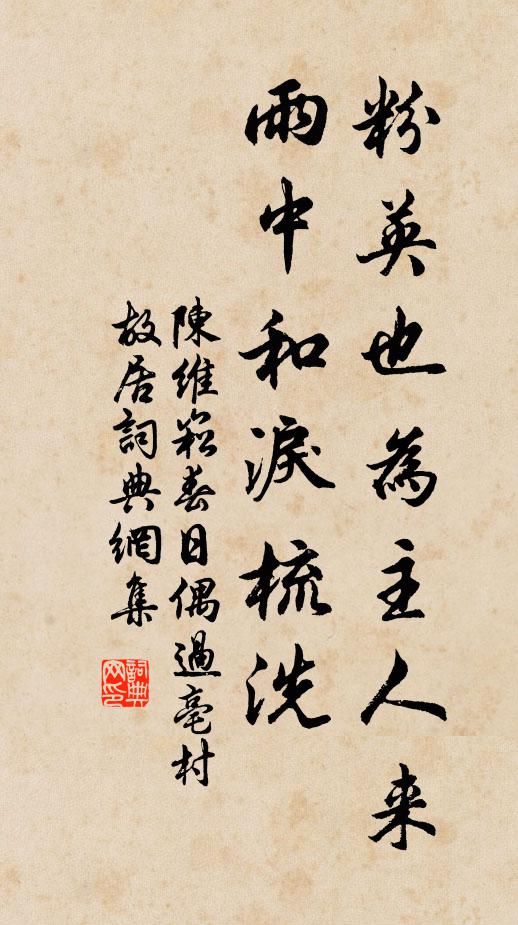 粉英也為主人来
雨中和淚梳洗
陳維崧春日偶過亳村
故居詞典網集
詞典网印